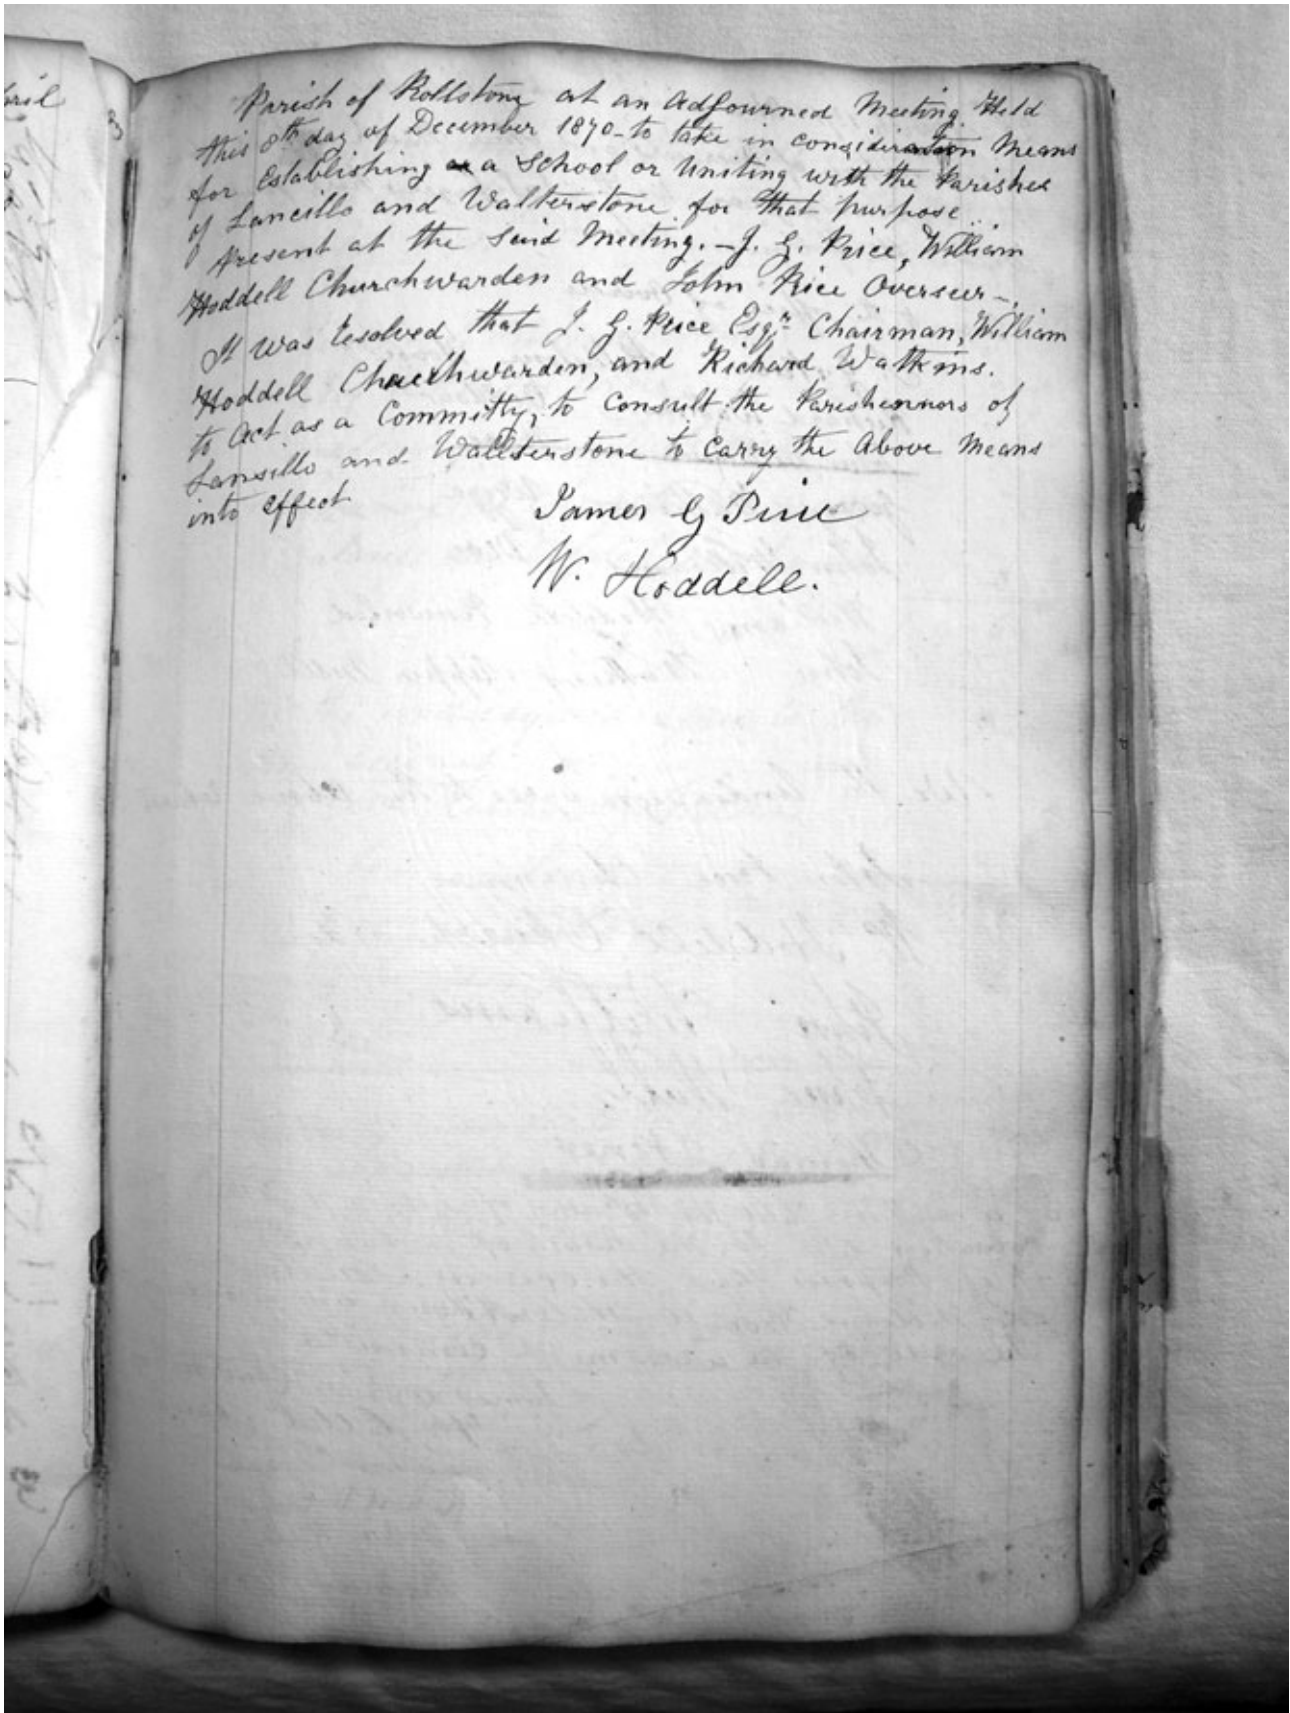 Parish of Rollstone at an Adjourned Meeting Held
this 8th day of December 1870 - to take in consideration Means
for Establishing a School or Uniting with the Parishes
of Lancillo and Walterstone for that purpose
Present at the Said Meeting. - J. G. Price, William
Hoddell Churchwarden and John Rice Overseer -
It was resolved that J. G. Price Esqr. Chairman, William
Hoddell Churchwarden, and Richard Watkins.
to Act as a Committy, to Consult the Parishennors of
Lansillo and Wallterstone to Carry the Above Means
into Effect
James G Price
W. Hoddell.